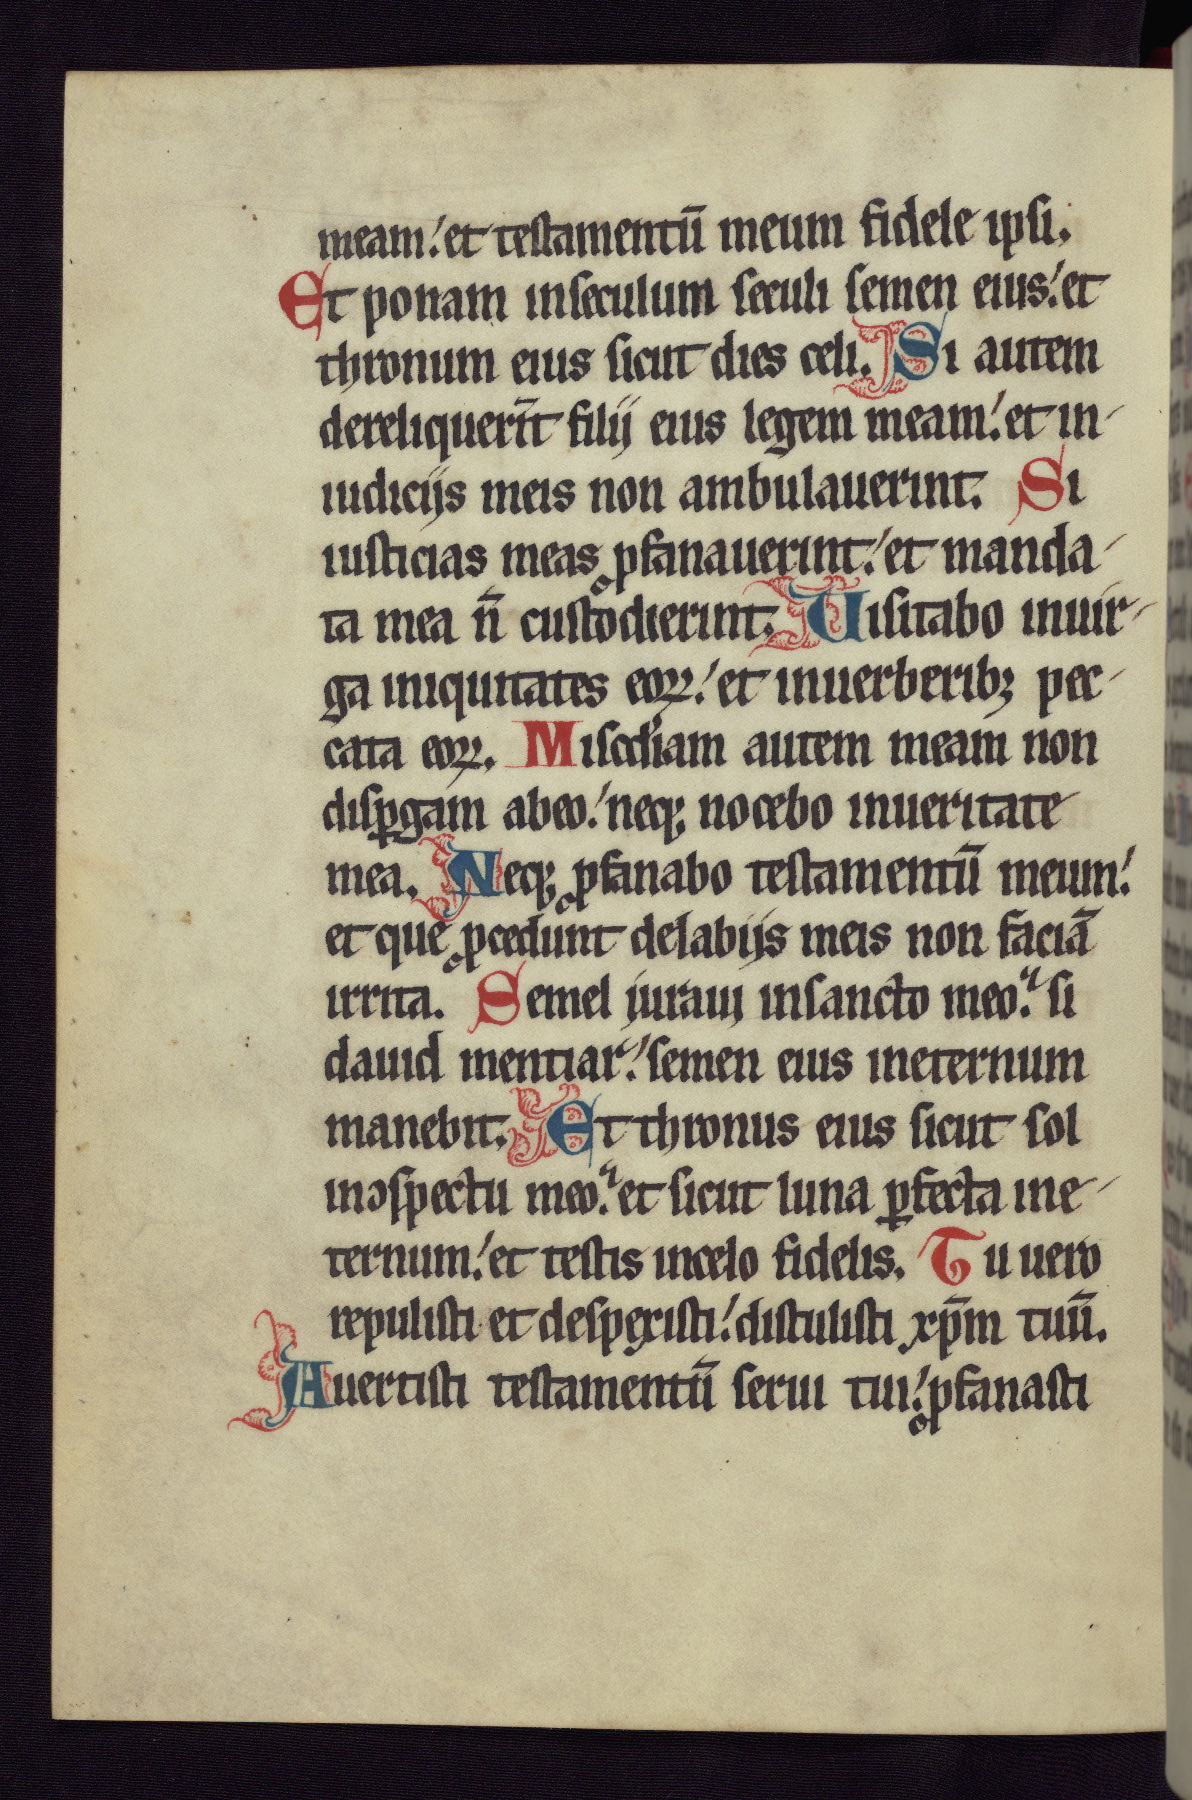 meam. et testamentū meum fidele ipsi.
Et ponam inseculum seculi semen eius. et
thronum eius sicut dies celi. Si autem
dereliquerīt filij eius legem meam. et in-
iudicijs meis non ambulauerint. Si
iusticias meas ꝓfanauerint. et manda-
ta mea n̄ custodierint. Uisitabo inuir-
ga iniquitates eoꝝ. et inuerberibꝫ pec-
cata eoꝝ. Misc̄diam autem meam non
disꝑgam abeo. neqꝫ nocebo inueritate
mea. Neqꝫ ꝓfanabo testamentū meum.
et que ꝓcedunt delabijs meis non faciā
irrita. Semel iuraui insancto meo. si
dauid mentiar. semen eius ineternum
manebit. Et thronus eius sicut sol
inↄspectu meo. et sicut luna ꝑfecta ine-
ternum. et testis incelo fidelis. Tu uero
repulisti et despexisti. distulisti xp̄m tuū.
Auertisti testamentū serui tui. ꝓfanasti